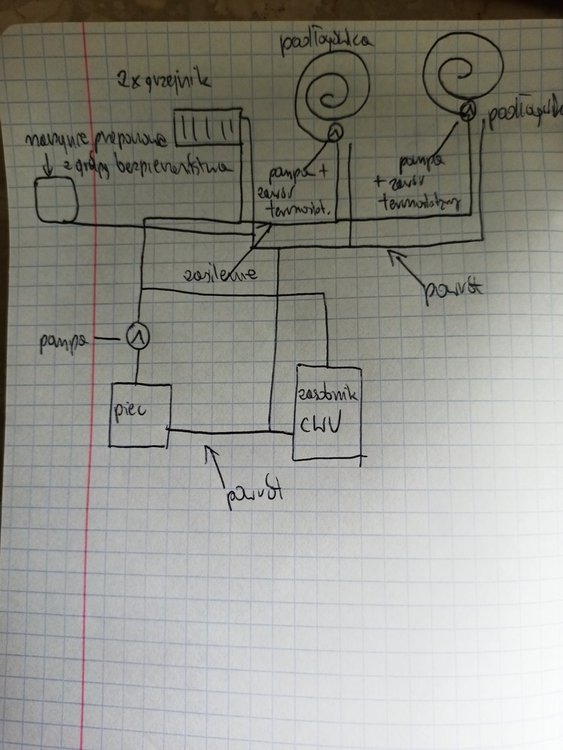 podłogówka
2x grzejnik
podłogówk
naczynie preponowe
z grupą bezpieczeństwa
pompa +
zawór
termostat.
pompa
+ zawór
termostatyczny
zasilenie
powrót
pompa
piec
zasobnik
CWU
powrót